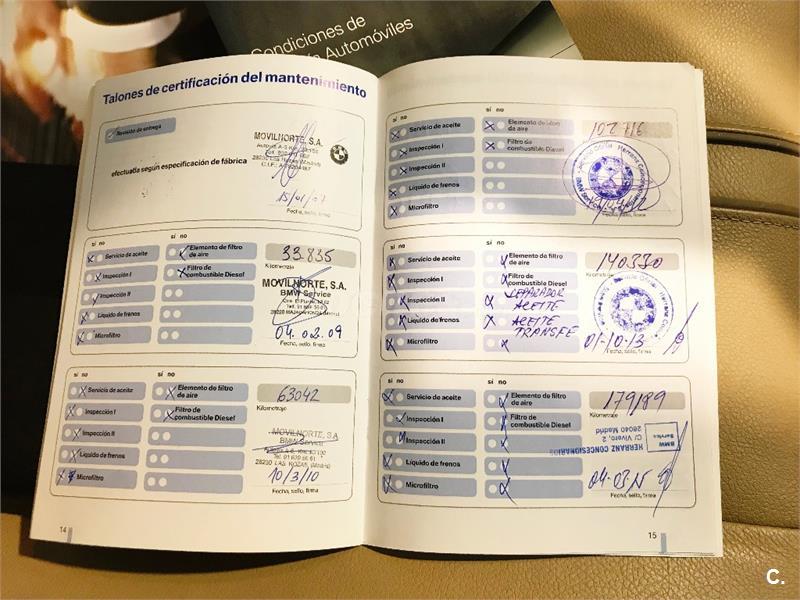 Condiciones de
Automóviles
Talones de certificación del mantenimiento
Revisión de entrega
efectuada según especificación de fábrica
MOVILNORTE, S.A.
15/01/07
Fecha, sello, firma
sí no
sí no
Servicio de aceite
Elemento de filtro de aire
33.835
Kilometraje
Inspección I
Filtro de combustible Diesel
Inspección II
MOVILNORTE, S.A.
BMW Service
Líquido de frenos
Microfiltro
04.02.09
Fecha, sello, firma
sí no
sí no
Servicio de aceite
Elemento de filtro de aire
63042
Kilometraje
Inspección I
Filtro de combustible Diesel
Inspección II
MOVILNORTE, S.A
BMW Service
Líquido de frenos
28230 LAS ROZAS (Madrid)
Microfiltro
10/3/10
Fecha, sello, firma
14
sí no
sí no
Servicio de aceite
Elemento de filtro de aire
Inspección I
Filtro de combustible Diesel
Inspección II
Líquido de frenos
Microfiltro
Fecha, sello, firma
sí no
sí no
Servicio de aceite
Elemento de filtro de aire
140330
Kilometraje
Inspección I
Filtro de combustible Diesel
SEPARADOR
Inspección II
ACEITE
Líquido de frenos
ACEITE
TRANSFE
Microfiltro
01-10-13
Fecha, sello, firma
sí no
sí no
Servicio de aceite
Elemento de filtro de aire
179189
Kilometraje
Inspección I
Filtro de combustible Diesel
BMW Service
HERRANZ CONCESIONARIOS
C/ Vivero, 2
28040 Madrid
Inspección II
Líquido de frenos
Microfiltro
04-03-15
Fecha, sello, firma
15
C.